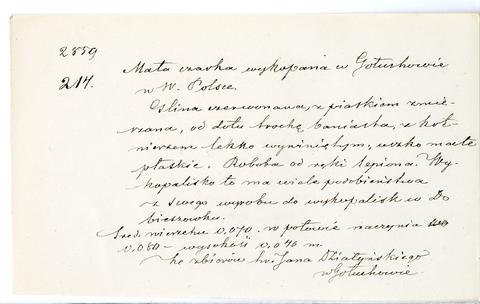 2859
214.
Mała czarka wykopana w Gołuchowie
w W. Polsce.
Glina czerwonawa, z piaskiem zmie-
szana, od dołu trochę baniasta, z koł-
nierzem lekko wywiniętym, uszko małe
płaskie. Robota od ręki lepiona. Wy-
kopalisko to ma wiele podobieństwa
z swego wyrobu do wykopalisk w Do
bieszewku.
Śred. wierzchu 0,070. w połowie naczynia
0,080 – wysokość 0,040 m.
Ze zbiorów hr. Jana Działyńskiego
w Gołuchowie.